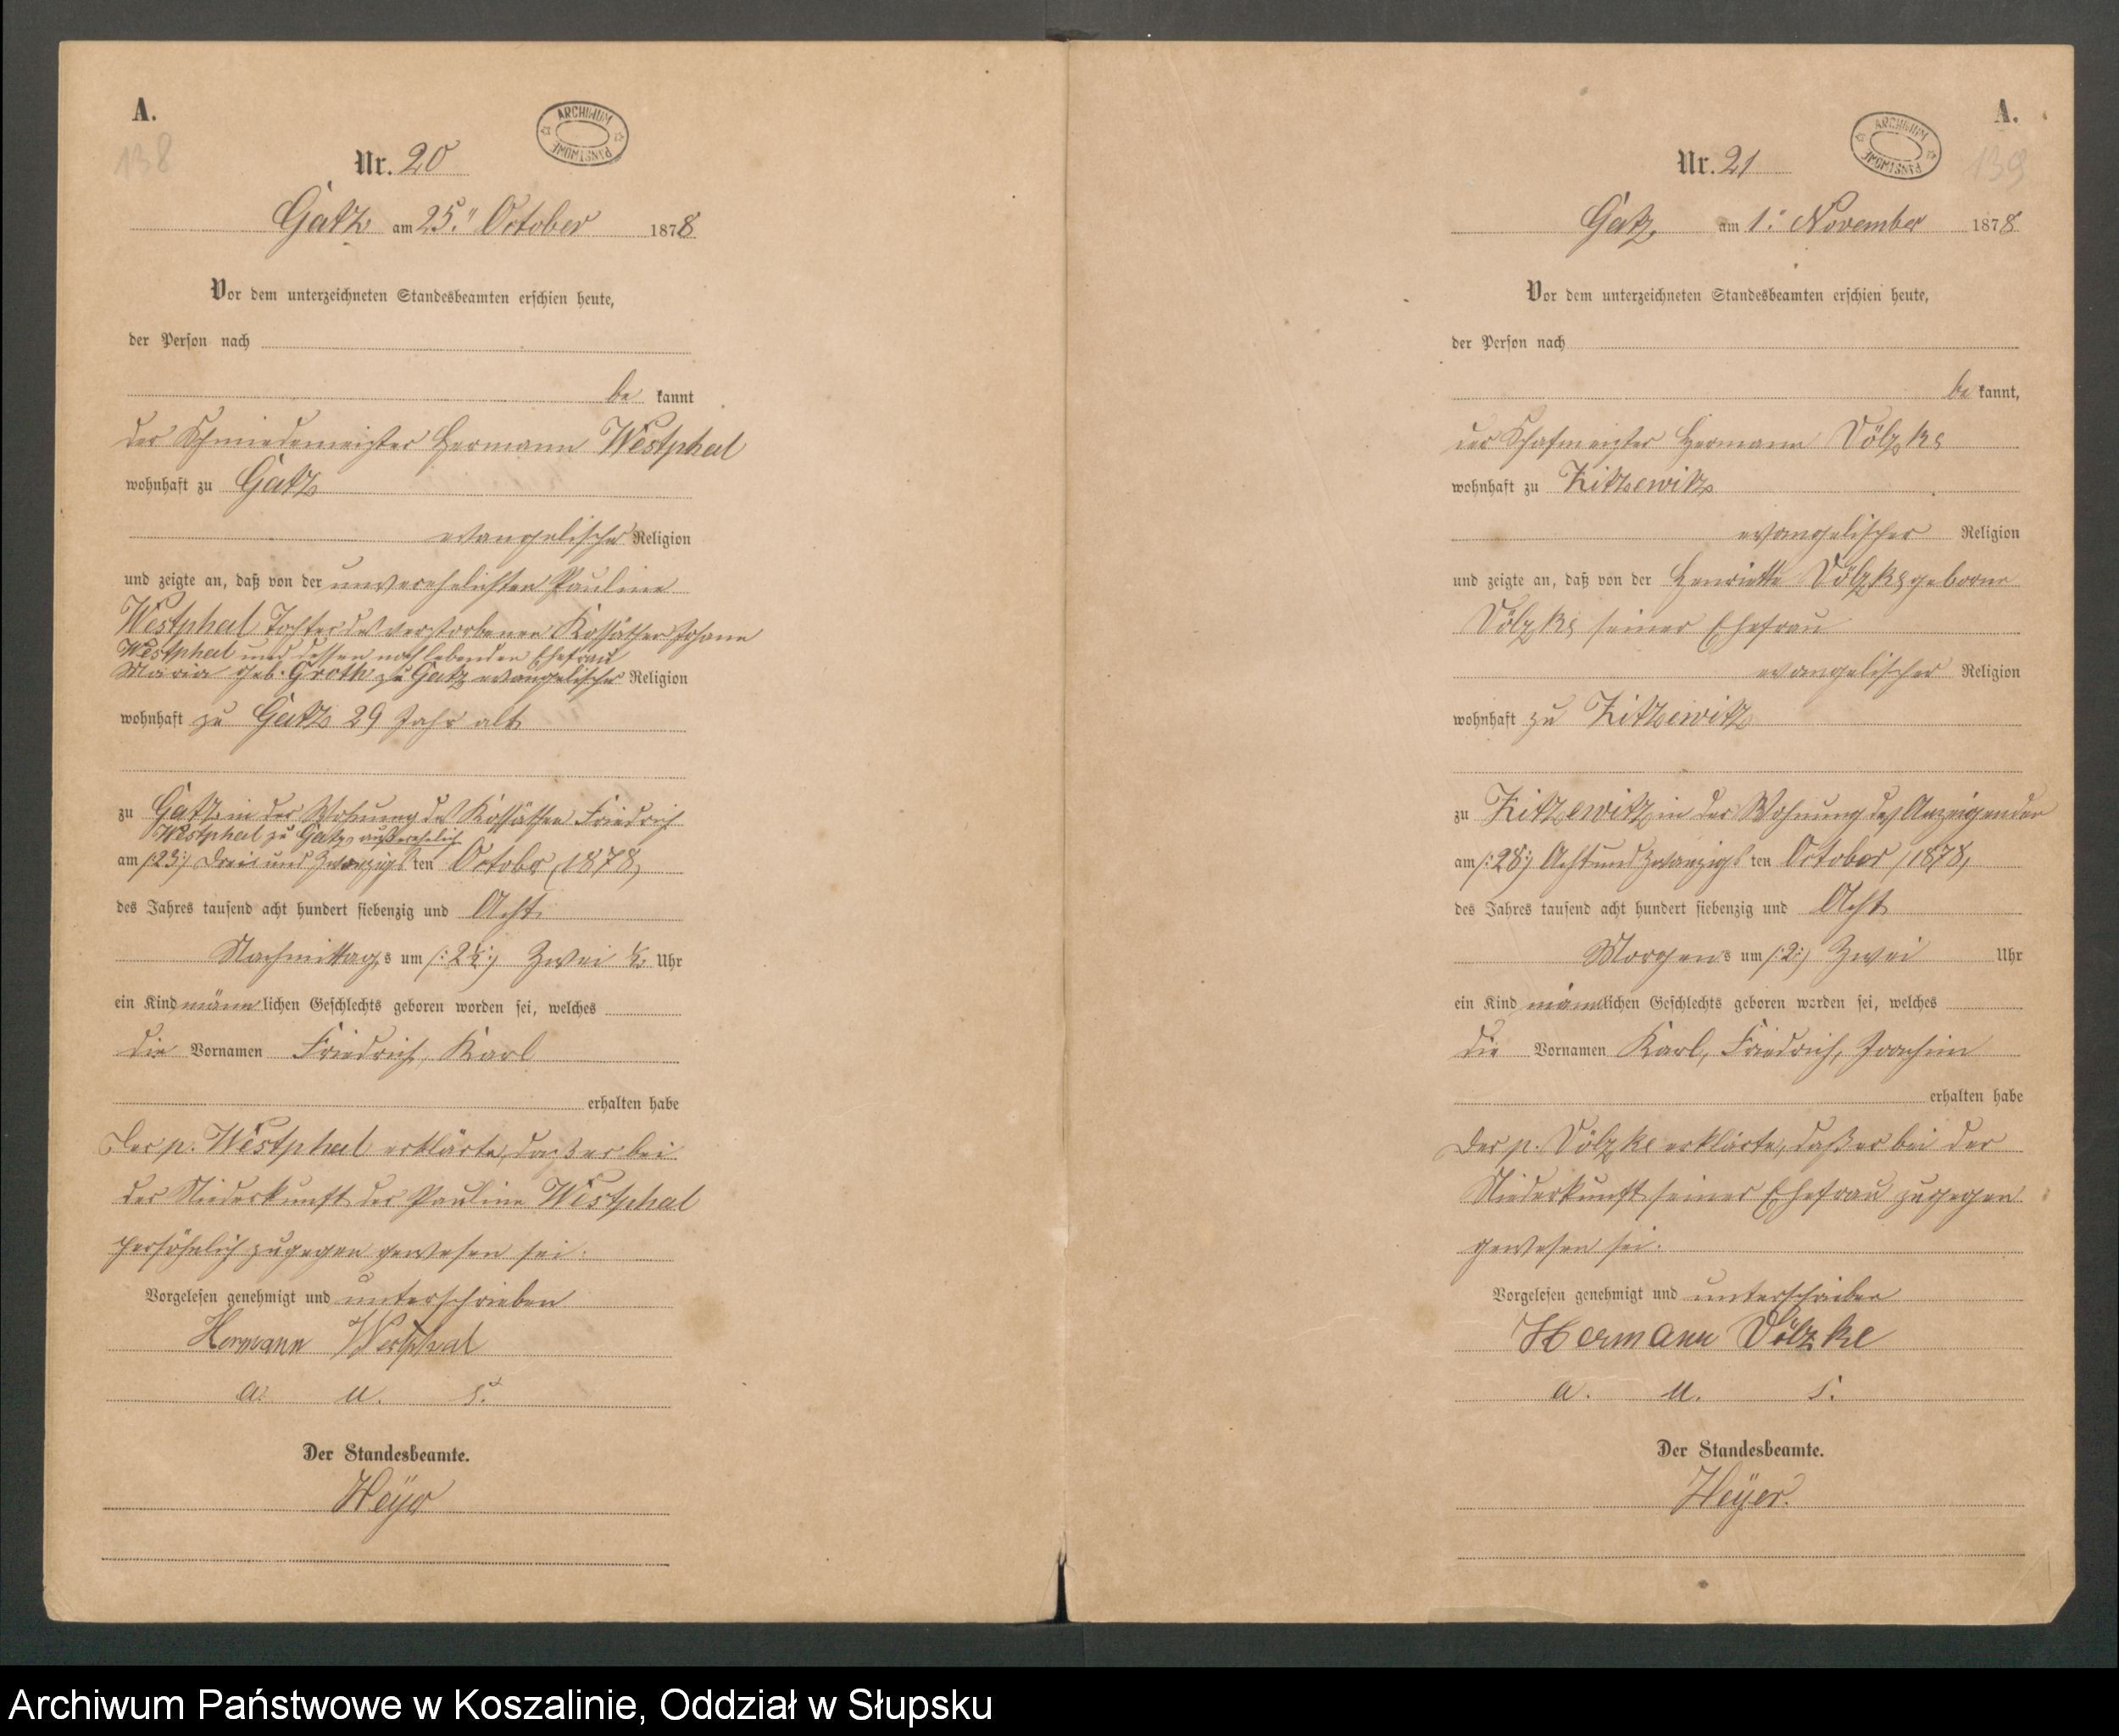 A.
138
ARCHIWUM PAŃSTWOWE
Nr. 20
Gatz am 25. October 1878
Vor dem unterzeichneten Standesbeamten erschien heute,
der Person nach
be kannt
der Schmiedemeister Hermann Westphal
wohnhaft zu Gatz
evangelischer Religion
und zeigte an, daß von der unverehelichten Pauline
Westphal Tochter des verstorbenen Kossäthen Johann
Westphal und dessen noch lebenden Ehefrau
Maria geb. Groth zu Gatz evangelischer Religion
wohnhaft zu Gatz 29 Jahr alt
zu Gatz in der Wohnung des Kossäthen Friedrich
Westphal zu Gatz, außerehelich
am /:23:/ Drei und Zwanzigs ten October /1878/
des Jahres tausend acht hundert siebenzig und Acht
Nachmittags um /:2½:/ Zwei ½ Uhr
ein Kind männ lichen Geschlechts geboren worden sei, welches
die Vornamen Friedrich, Karl
erhalten habe
Der p. Westphal erklärte, daß er bei
der Niederkunft der Pauline Westphal
persöhnlich zugegen gewesen sei.
Vorgelesen genehmigt und unterschrieben
Hermann Westphal
a. u. s.
Der Standesbeamte.
Heÿer
A.
139
ARCHIWUM PAŃSTWOWE
Nr. 21
Gatz am 1. November 1878
Vor dem unterzeichneten Standesbeamten erschien heute,
der Person nach
be kannt,
der Schafmeister Hermann Völzke
wohnhaft zu Zitzewitz
evangelischer Religion
und zeigte an, daß von der Henriette Völzke geborne
Völzke seiner Ehefrau
evangelischer Religion
wohnhaft zu Zitzewitz
zu Zitzewitz in der Wohnung des Anzeigenden
am /:28:/ Acht und Zwanzigs ten October /1878/
des Jahres tausend acht hundert siebenzig und Acht
Morgens um /:2:/ Zwei Uhr
ein Kind männlichen Geschlechts geboren worden sei, welches
die Vornamen Karl, Friedrich, Joachim
erhalten habe
Der p. Völzke erklärte, daß er bei der
Niederkunft seiner Ehefrau zugegen
gewesen sei.
Vorgelesen genehmigt und unterschrieben
Hermann Völzke
a. u. s.
Der Standesbeamte.
Heÿer.
Archiwum Państwowe w Koszalinie, Oddział w Słupsku